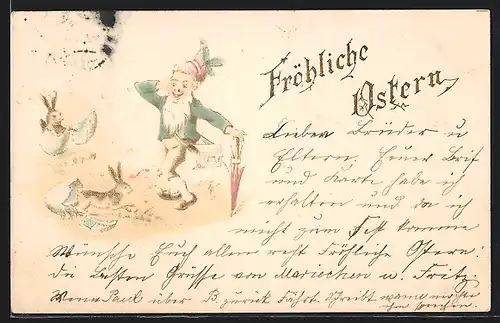 Fröhliche
Ostern
Lieber Brüder u
Eltern. Heuer Brif
und Karte habe ich
erhalten und da ich
nicht zum Fest komme
Wünsche Euch allen recht Fröhliche Ostern
die Besten Grüsse von Mariechen u. Fritz.
Wenn Paul über B. zurück Fährt. Schreibt wann
sprechen.